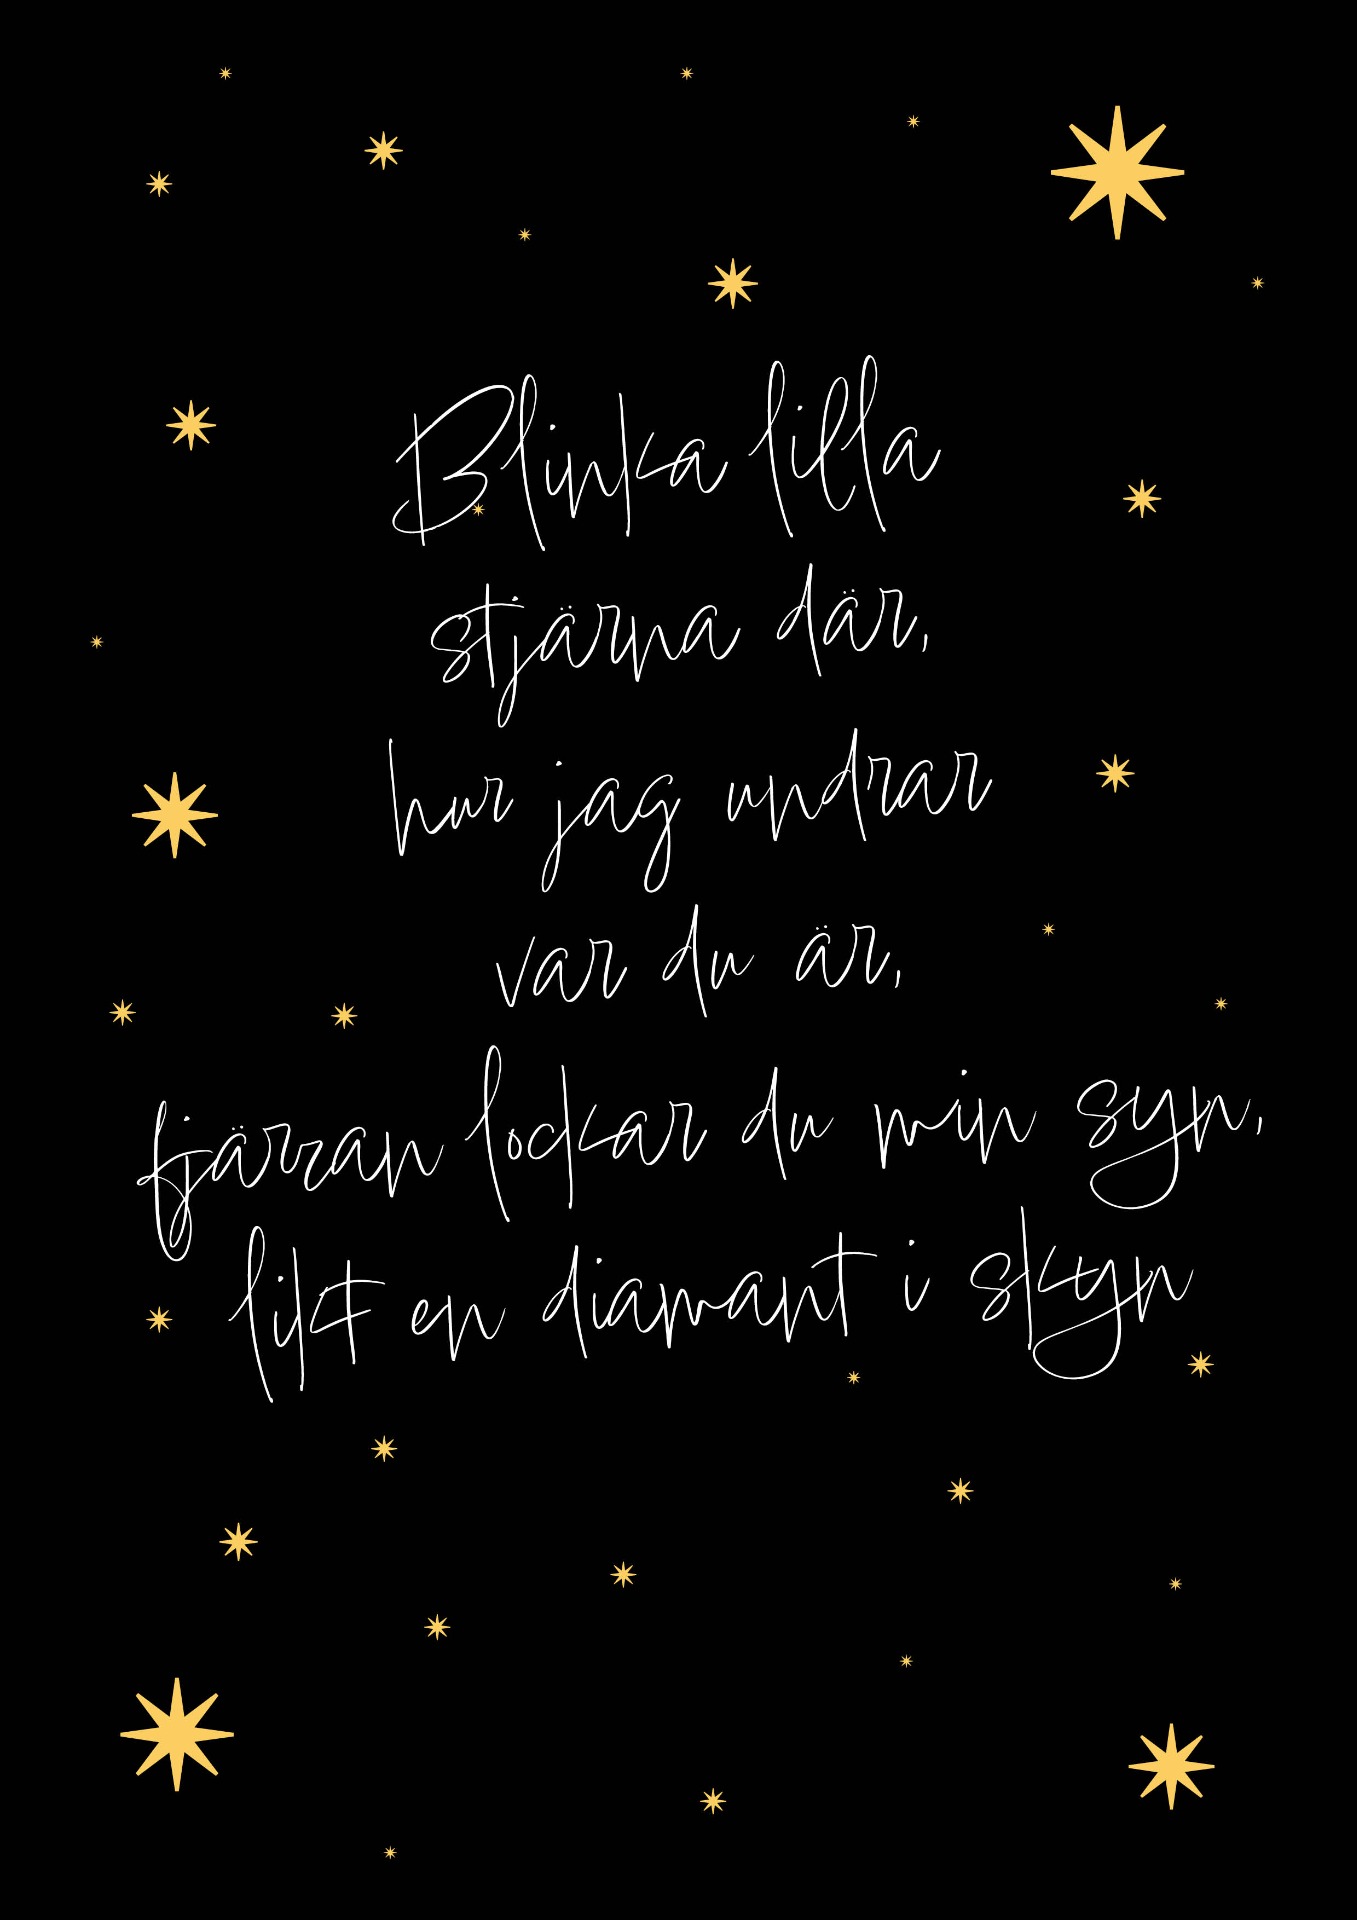 Blinka lilla
stjärna där,
hur jag undrar
var du är,
fjärran lockar du min syn,
likt en diamant i skyn